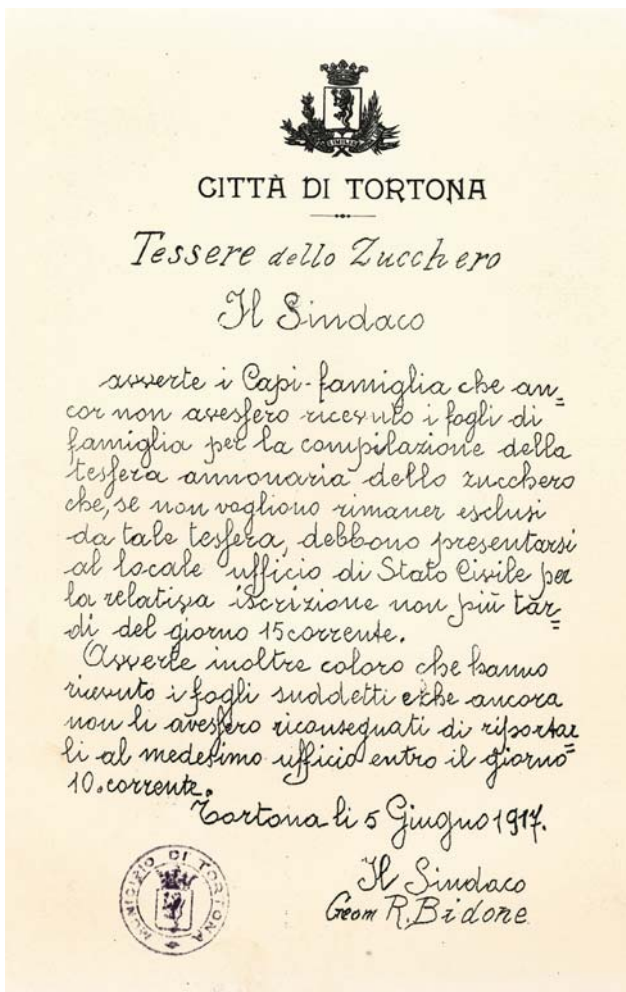 CITTÀ DI TORTONA
Tessere dello Zucchero
Il Sindaco
avverte i Capi-famiglia che an=
cor non avessero ricevuto i fogli di
famiglia per la compilazione della
tessera annonaria dello zucchero
che, se non vogliono rimaner esclusi
da tale tessera, debbono presentarsi
al locale ufficio di Stato Civile per
la relativa iscrizione non più tar=
di del giorno 15 corrente.
Avverte inoltre coloro che hanno
ricevuto i fogli suddetti e che ancora
non li avessero riconsegnati di riportar=
li al medesimo ufficio entro il giorno
10. corrente.
Tortona li 5 Giugno 1917.
Il Sindaco
Geom R. Bidone
MUNICIPIO DI TORTONA